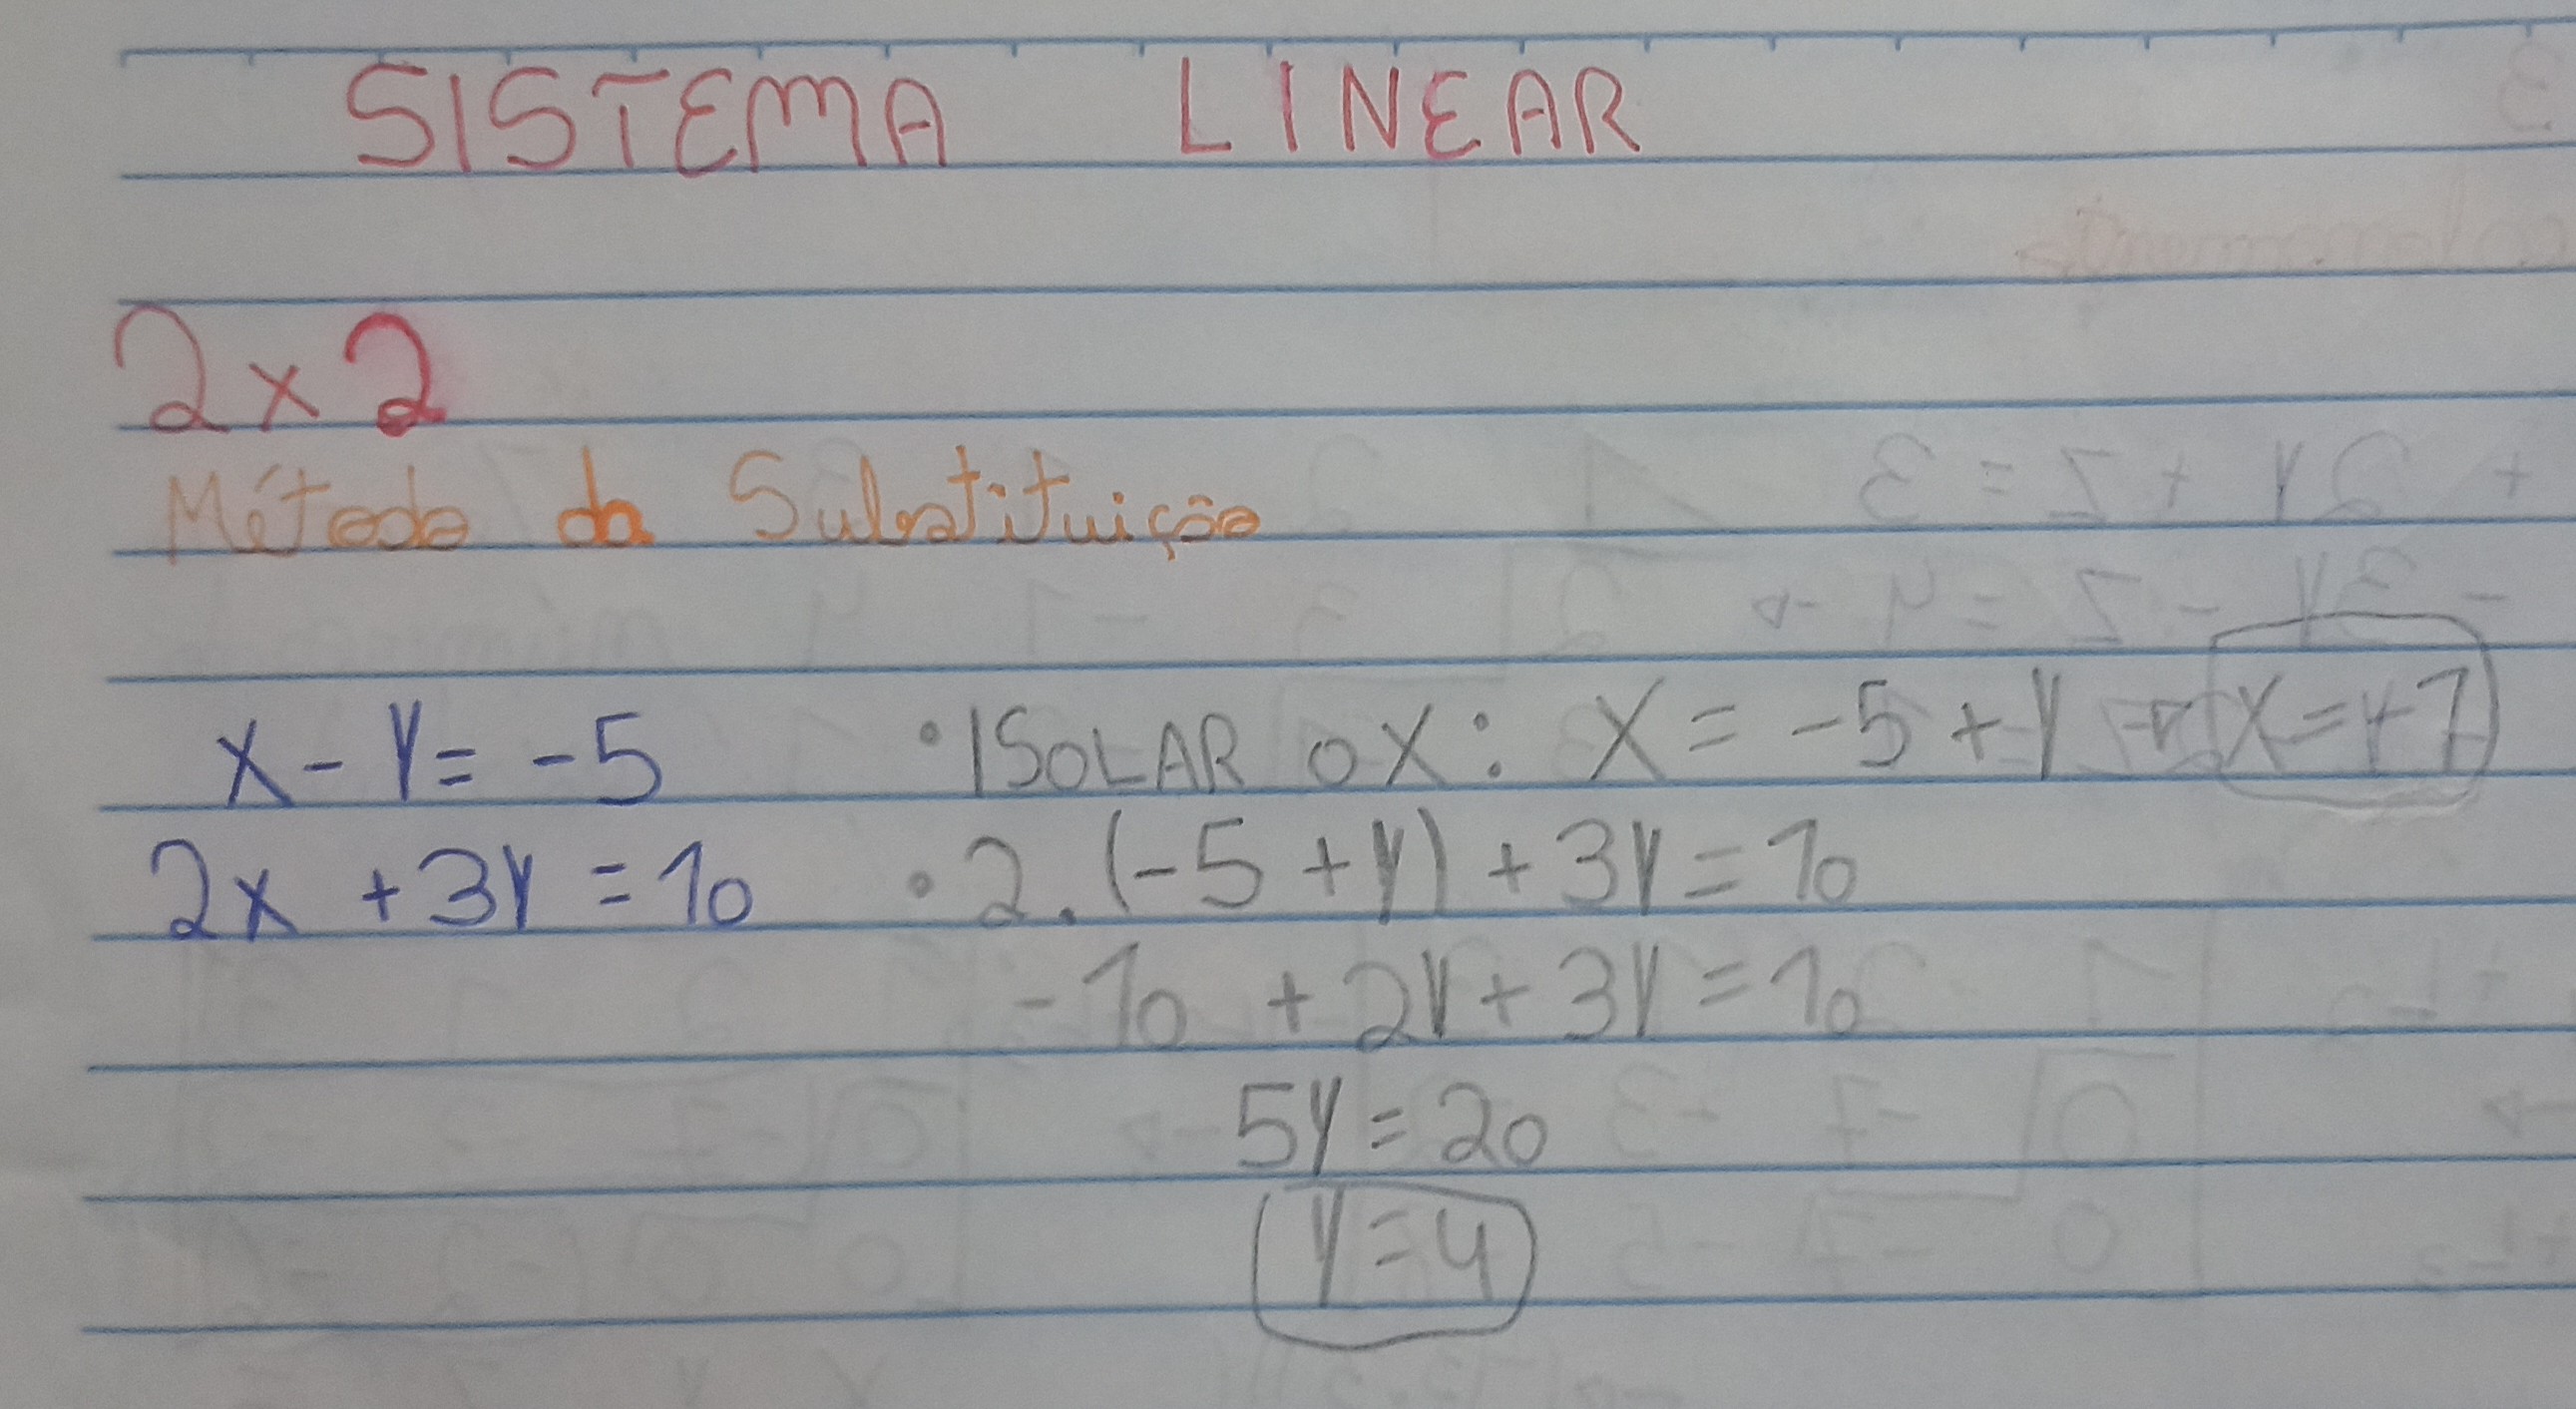 SISTEMA LINEAR
2x2
Método da Substituição
x - y = -5 • ISOLAR O X: X = -5 + y → x = +7
2x + 3y = 10 • 2.(-5 + y) + 3y = 10
-10 + 2y + 3y = 10
5y = 20
y = 4